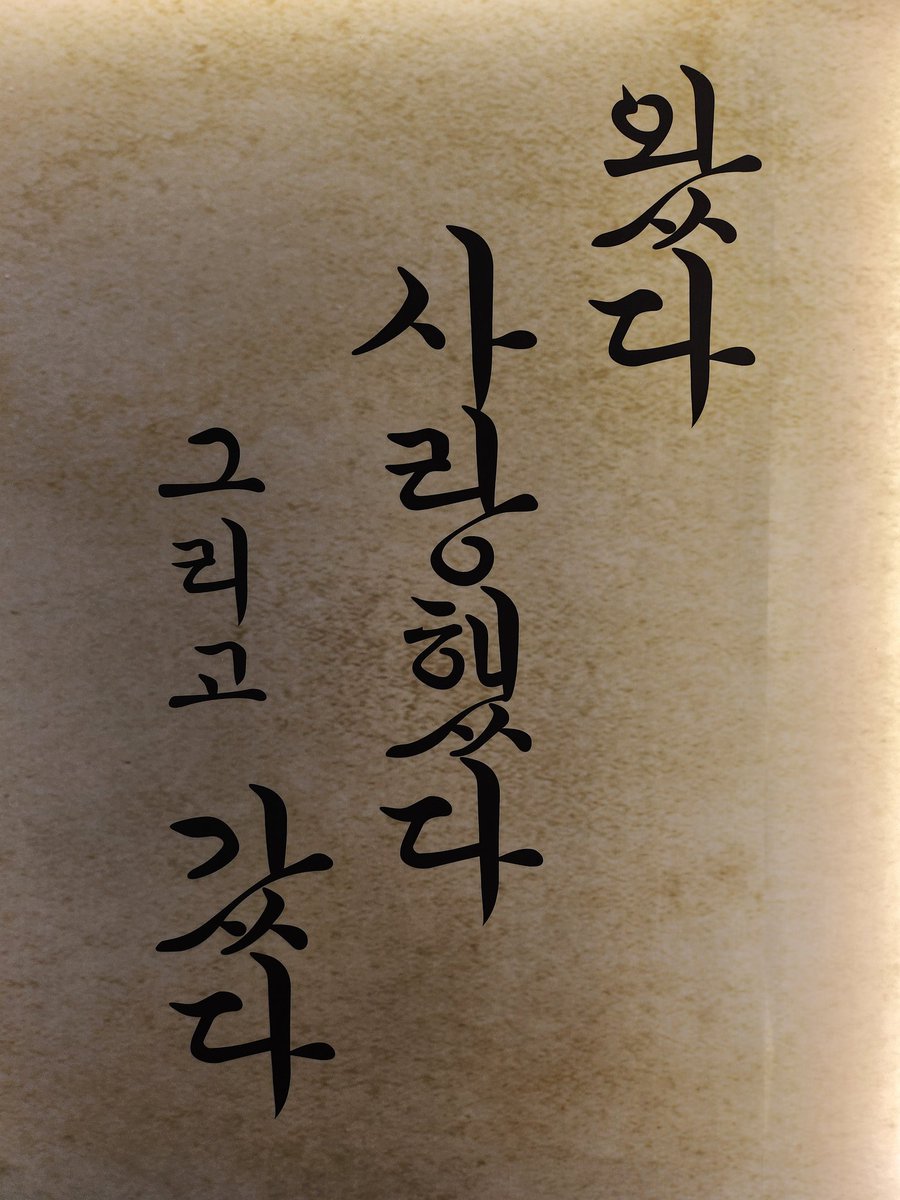 왔다
사랑했다
그리고 갔다